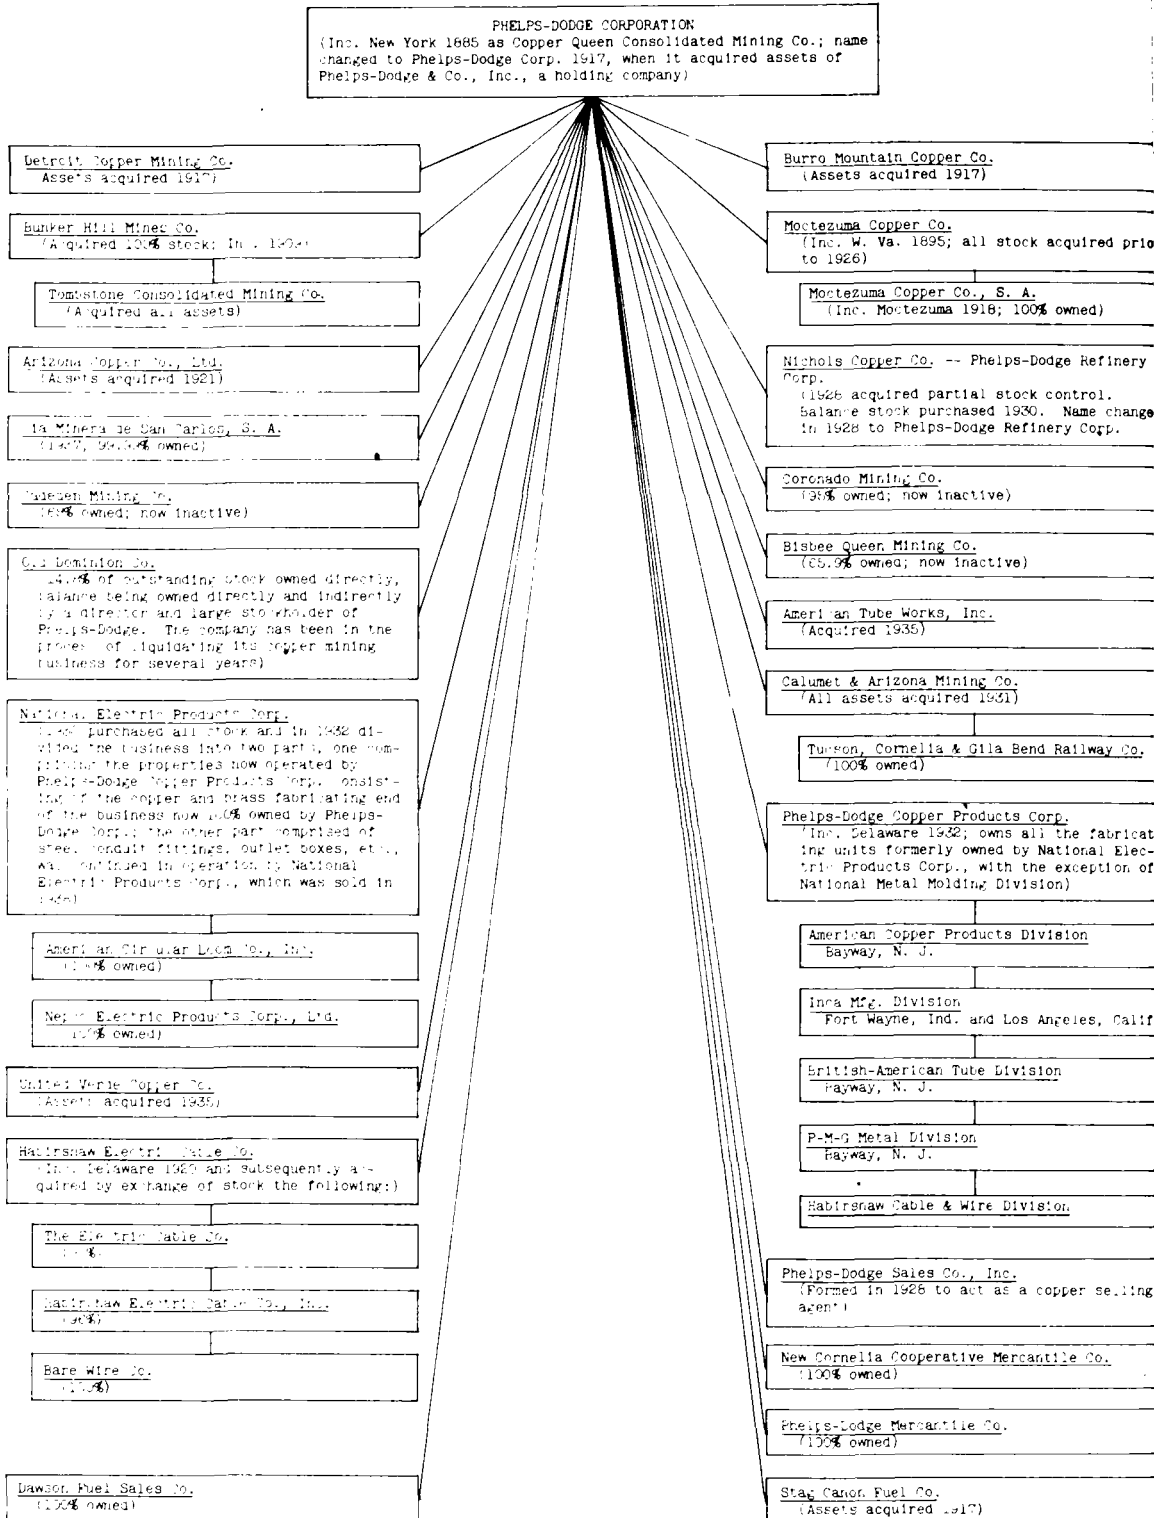 PHELPS-DODGE CORPORATION
(Inc. New York 1885 as Copper Queen Consolidated Mining Co.; name
changed to Phelps-Dodge Corp. 1917, when it acquired assets of
Phelps-Dodge & Co., Inc., a holding company)
Detroit Copper Mining Co.
Assets acquired 1917)
Bunker Hill Mines Co.
(Acquired 100% stock;
Tombstone Consolidated Mining Co.
(Acquired all assets)
Arizona Copper Co., Ltd.
(Assets acquired 1921)
Minera de San Carlos, S. A.
owned)
Mining Co.
owned; now inactive)
Old Dominion Co.
of outstanding stock owned directly,
balance being owned directly and indirectly
by a director and large stockholder of
Phelps-Dodge. The company has been in the
process of liquidating its copper mining
business for several years)
National Electric Products Corp.
purchased all stock and in 1932 di-
vided the business into two parts, one com-
prising the properties now operated by
Phelps-Dodge Copper Products Corp. consist-
ing of the copper and brass fabricating end
of the business now 100% owned by Phelps-
Dodge Corp.; the other part comprised of
steel conduit fittings, outlet boxes, etc.,
was continued in operation by National
Electric Products Corp., which was sold in
1938)
American Circular Loom Co., Inc.
(100% owned)
Electric Products Corp., Ltd.
100% owned)
United Verde Copper Co.
(Assets acquired 1935)
Habirshaw Electric Cable Co.
(Inc. Delaware 1929 and subsequently ac-
quired by exchange of stock the following:)
The Electric Cable Co.
Habirshaw Electric Cable Co., Inc.
Bare Wire Co.
(100%)
Dawson Fuel Sales Co.
(100% owned)
Burro Mountain Copper Co.
(Assets acquired 1917)
Moctezuma Copper Co.
(Inc. W. Va. 1895; all stock acquired prio
to 1926)
Moctezuma Copper Co., S. A.
(Inc. Moctezuma 1918; 100% owned)
Nichols Copper Co. -- Phelps-Dodge Refinery
Corp.
(1928 acquired partial stock control.
Balance stock purchased 1930. Name change
in 1928 to Phelps-Dodge Refinery Corp.
Coronado Mining Co.
(98% owned; now inactive)
Bisbee Queen Mining Co.
(65.9% owned; now inactive)
American Tube Works, Inc.
(Acquired 1935)
Calumet & Arizona Mining Co.
(All assets acquired 1931)
Tucson, Cornelia & Gila Bend Railway Co.
(100% owned)
Phelps-Dodge Copper Products Corp.
(Inc. Delaware 1932; owns all the fabricat
ing units formerly owned by National Elec-
tric Products Corp., with the exception of
National Metal Molding Division)
American Copper Products Division
Bayway, N. J.
Inca Mfg. Division
Fort Wayne, Ind. and Los Angeles, Calif
British-American Tube Division
Bayway, N. J.
P-M-G Metal Division
Bayway, N. J.
Habirshaw Cable & Wire Division
Phelps-Dodge Sales Co., Inc.
(Formed in 1928 to act as a copper selling
agent)
New Cornelia Cooperative Mercantile Co.
(100% owned)
Phelps-Dodge Mercantile Co.
(100% owned)
Stag Canon Fuel Co.
(Assets acquired 1917)